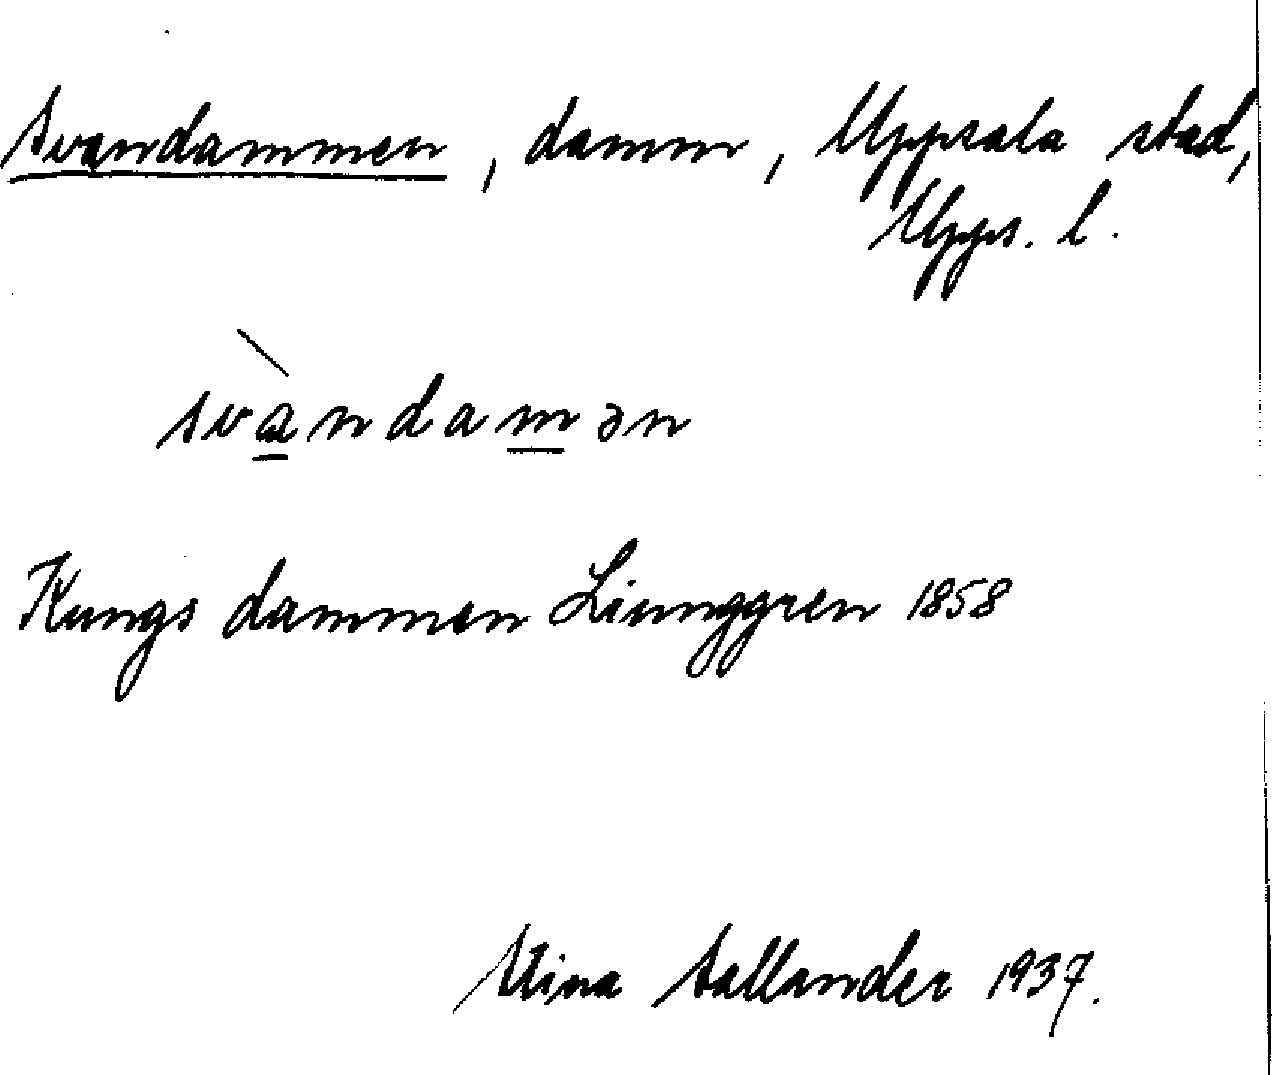 Svandammen, damm, Uppsala stad,
Upps. l.
svàndamən
Kungs dammen Liunggren 1858
Stina Sallander 1937.